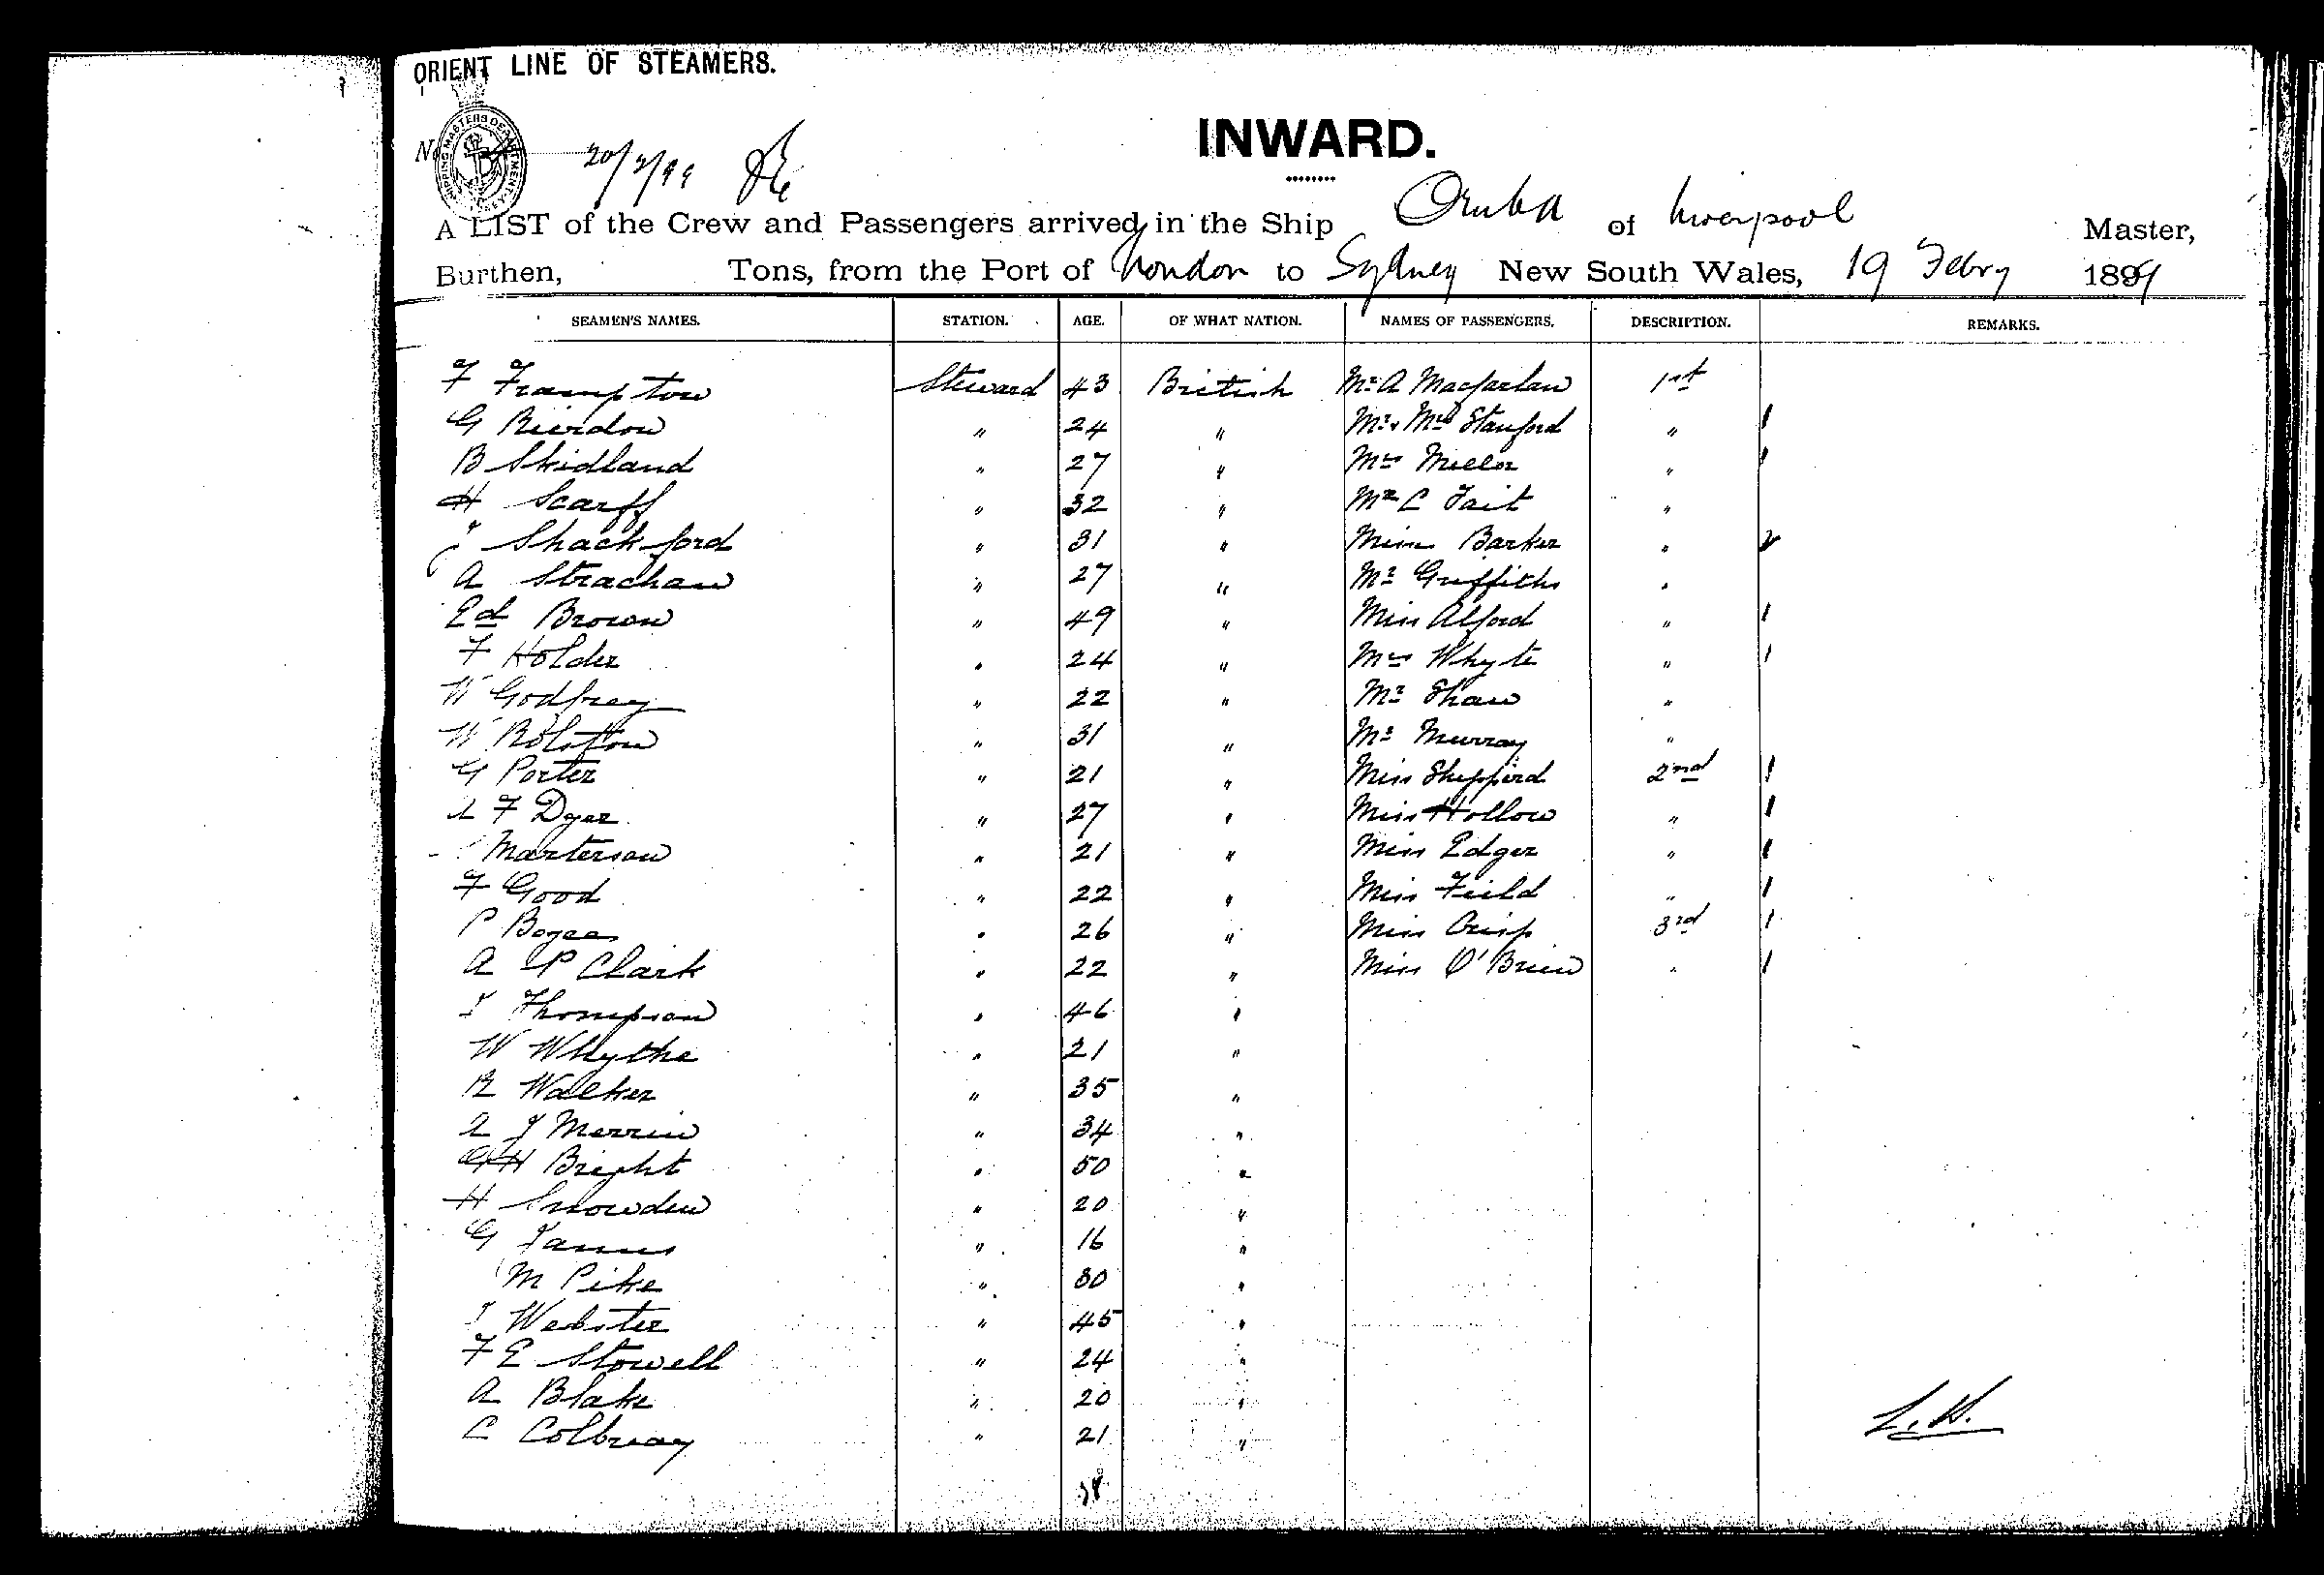 ORIENT LINE OF STEAMERS.
INWARD.
No
SHIPPING MASTERS DEPARTMENT SYDNEY
20/2/99
A LIST of the Crew and Passengers arrived in the Ship Oruba of Liverpool Master,
Burthen, Tons, from the Port of London to Sydney New South Wales, 19 Febry 1899
SEAMEN'S NAMES. STATION. AGE. OF WHAT NATION. NAMES OF PASSENGERS. DESCRIPTION. REMARKS.
F Frampton Steward 43 British Mr A Macfarlan 1st
G Rierdon " 24 " Mr & Mrs Stanford " 1
B Skidland " 27 " Mrs Miller " 1
H Scarff " 32 " Mr C Tait "
J Shackford " 31 " Miss Barker " 2
A Strachan " 27 " Mr Griffiths "
Ed Brown " 49 " Miss Alford " 1
F Holder " 24 " Mrs Whyte " 1
W Godfrey " 22 " Mr Shaw "
W Rolston " 31 " Mr Murray "
G Porter " 21 " Miss Shepperd 2nd 1
A F Dyer " 27 " Miss Hollow " 1
Marterson " 21 " Miss Edger " 1
F Good " 22 " Miss Feild " 1
P Boyce " 26 " Miss Crisp 3rd 1
A P Clark " 22 " Miss O'Brien " 1
J Thompson " 46 "
W Whythe " 21 "
R Walker " 35 "
A J Merrin " 34 "
G H Bright " 50 "
H Snowden " 20 "
G James " 16 "
M Pike " 30 "
J Webster " 45 "
F E Stowell " 24 "
A Blake " 20 "
C Colbray " 21 "
L.H.